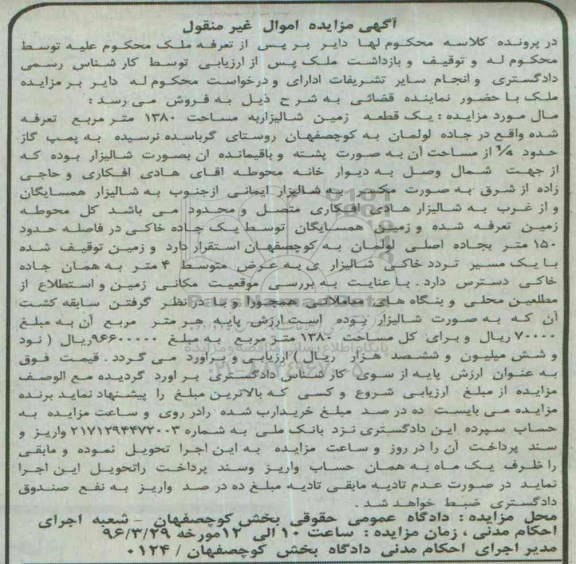 آگهی مزایده اموال غیر منقول
در پرونده کلاسه محکوم لها دایر بر پس از تعرفه ملک محکوم علیه توسط
محکوم له و توقیف و بازداشت ملک پس از ارزیابی توسط کارشناس رسمی
دادگستری و انجام سایر تشریفات اداری و درخواست محکوم له دایر بر مزایده
ملک با حضور نماینده قضائی به شرح ذیل به فروش می رسد :
مال مورد مزایده : یک قطعه زمین شالیزاربه مساحت ۱۳۸۰ متر مربع تعرفه
شده واقع در جاده لولمان به کوچصفهان روستای گرباسده نرسیده به پمپ گاز
حدود از مساحت آن به صورت پشته و باقیمانده ان بصورت شالیزار بوده که
از جهت شمال وصل به دیوار خانه محوطه اقای هادی افکاری و حاجی
زاده از شرق به صورت مکسر به شالیزار ایمانی ازجنوب به شالیزار همسایگان
و از غرب به شالیزار هادی افکاری متصل و محدود می باشد کل محوطه
زمین تعرفه شده و زمین همسایگان توسط یک جاده خاکی در فاصله حدود
۱۵۰ متر بجاده اصلی لولمان به کوچصفهان استقرار دارد و زمین توقیف شده
با یک مسیر تردد خاکی شالیزار ی به عرض متوسط ۴ متر به همان جاده
خاکی دسترس دارد . با عنایت به بررسی موقعیت مکانی زمین و استطلاع از
مطلعین محلی و بنگاه های معاملاتی همجوار و با در نظر گرفتن سابقه کشت
آن که به صورت شالیزار بوده است ارزش پایه هر متر مربع آن به مبلغ
۷۰۰۰۰ ریال و برای کل مساحت ۱۳۸۰ متر مربع به مبلغ ۹۶۶۰۰۰۰۰ ریال ( نود
و شش میلیون و ششصد هزار ریال ) ارزیابی و براورد می گردد . قیمت فوق
به عنوان ارزش پایه از سوی کارشناس دادگستری بر اورد گردیده مع الوصف
مزایده از مبلغ ارزیابی شروع و کسی که بالاترین مبلغ را پیشنهاد نماید برنده
مزایده می بایست ده در صد مبلغ خریدارب شده رادر روی و ساعت مزایده به
حساب سپرده این دادگستری نزد بانک ملی به شماره ۲۱۷۱۲۹۴۴۷۲۰۰۳ واریز و
سند پرداخت آن را در روز و ساعت مزایده به این اجرا تحویل نموده و مابقی
را ظرف یک ماه به همان حساب واریز وسند پرداخت راتحویل این اجرا
نماید در صورت عدم تادیه مابقی تادیه مبلغ ده در صد واریز به نفع صندوق
دادگستری ضبط خواهد شد .
محل مزایده : دادگاه عمومی حقوقی بخش کوچصفهان – شعبه اجرای
احکام مدنی ، زمان مزایده : ساعت ۱۰ الی ۱۲ مورخه ۹۶/۳/۲۹
مدیر اجرای احکام مدنی دادگاه بخش کوچصفهان / ۰۱۲۴